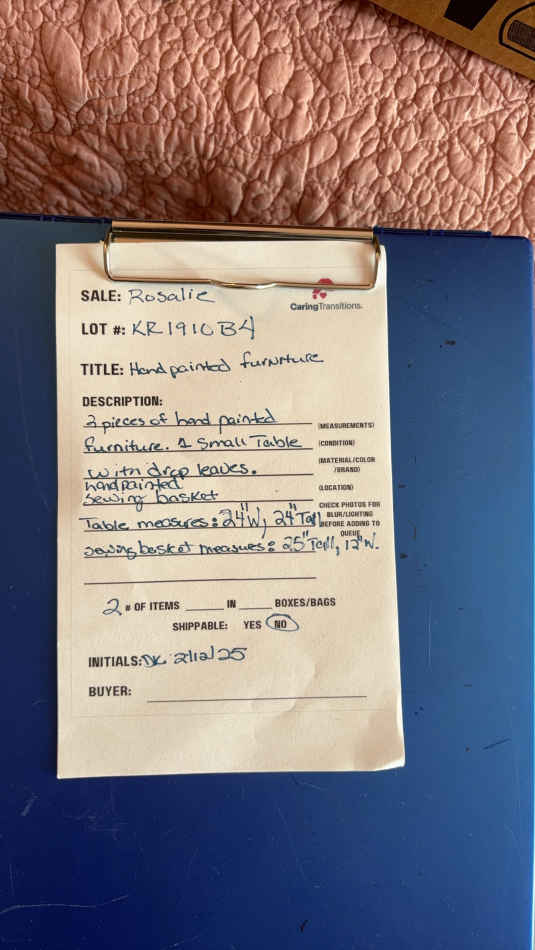 SALE: Rosalie
CaringTransitions.
LOT #: KR1910B4
TITLE: Hand painted furniture
DESCRIPTION:
2 pieces of hand painted (MEASUREMENTS)
furniture. 1 Small Table (CONDITION)
with drop leaves. (MATERIAL/COLOR
/BRAND)
hand painted (LOCATION)
Sewing basket
CHECK PHOTOS FOR
BLUR/LIGHTING
BEFORE ADDING TO
QUEUE
Table measures: 24"W, 24"Tall
sewing basket measures: 25"Tall, 12"W.
2 # OF ITEMS ____ IN ____ BOXES/BAGS
SHIPPABLE: YES NO
INITIALS: DK 2/12/25
BUYER: